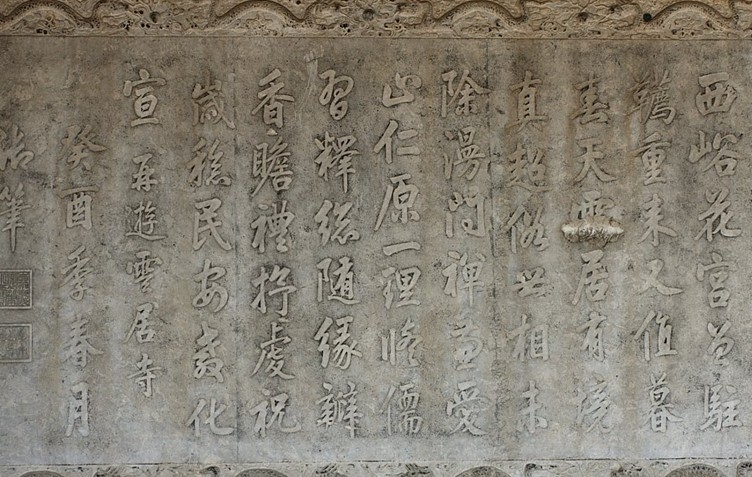 西峪花宮曾駐
韉重来又值暮
春天雲居有境
真超俗無相未
除漫問禪兼愛
山仁原一理脩儒
習釋總隨緣瓣
香瞻禮抒虔祝
歲稔民安教化
宣 再遊雲居寺
癸酉季春月
御筆